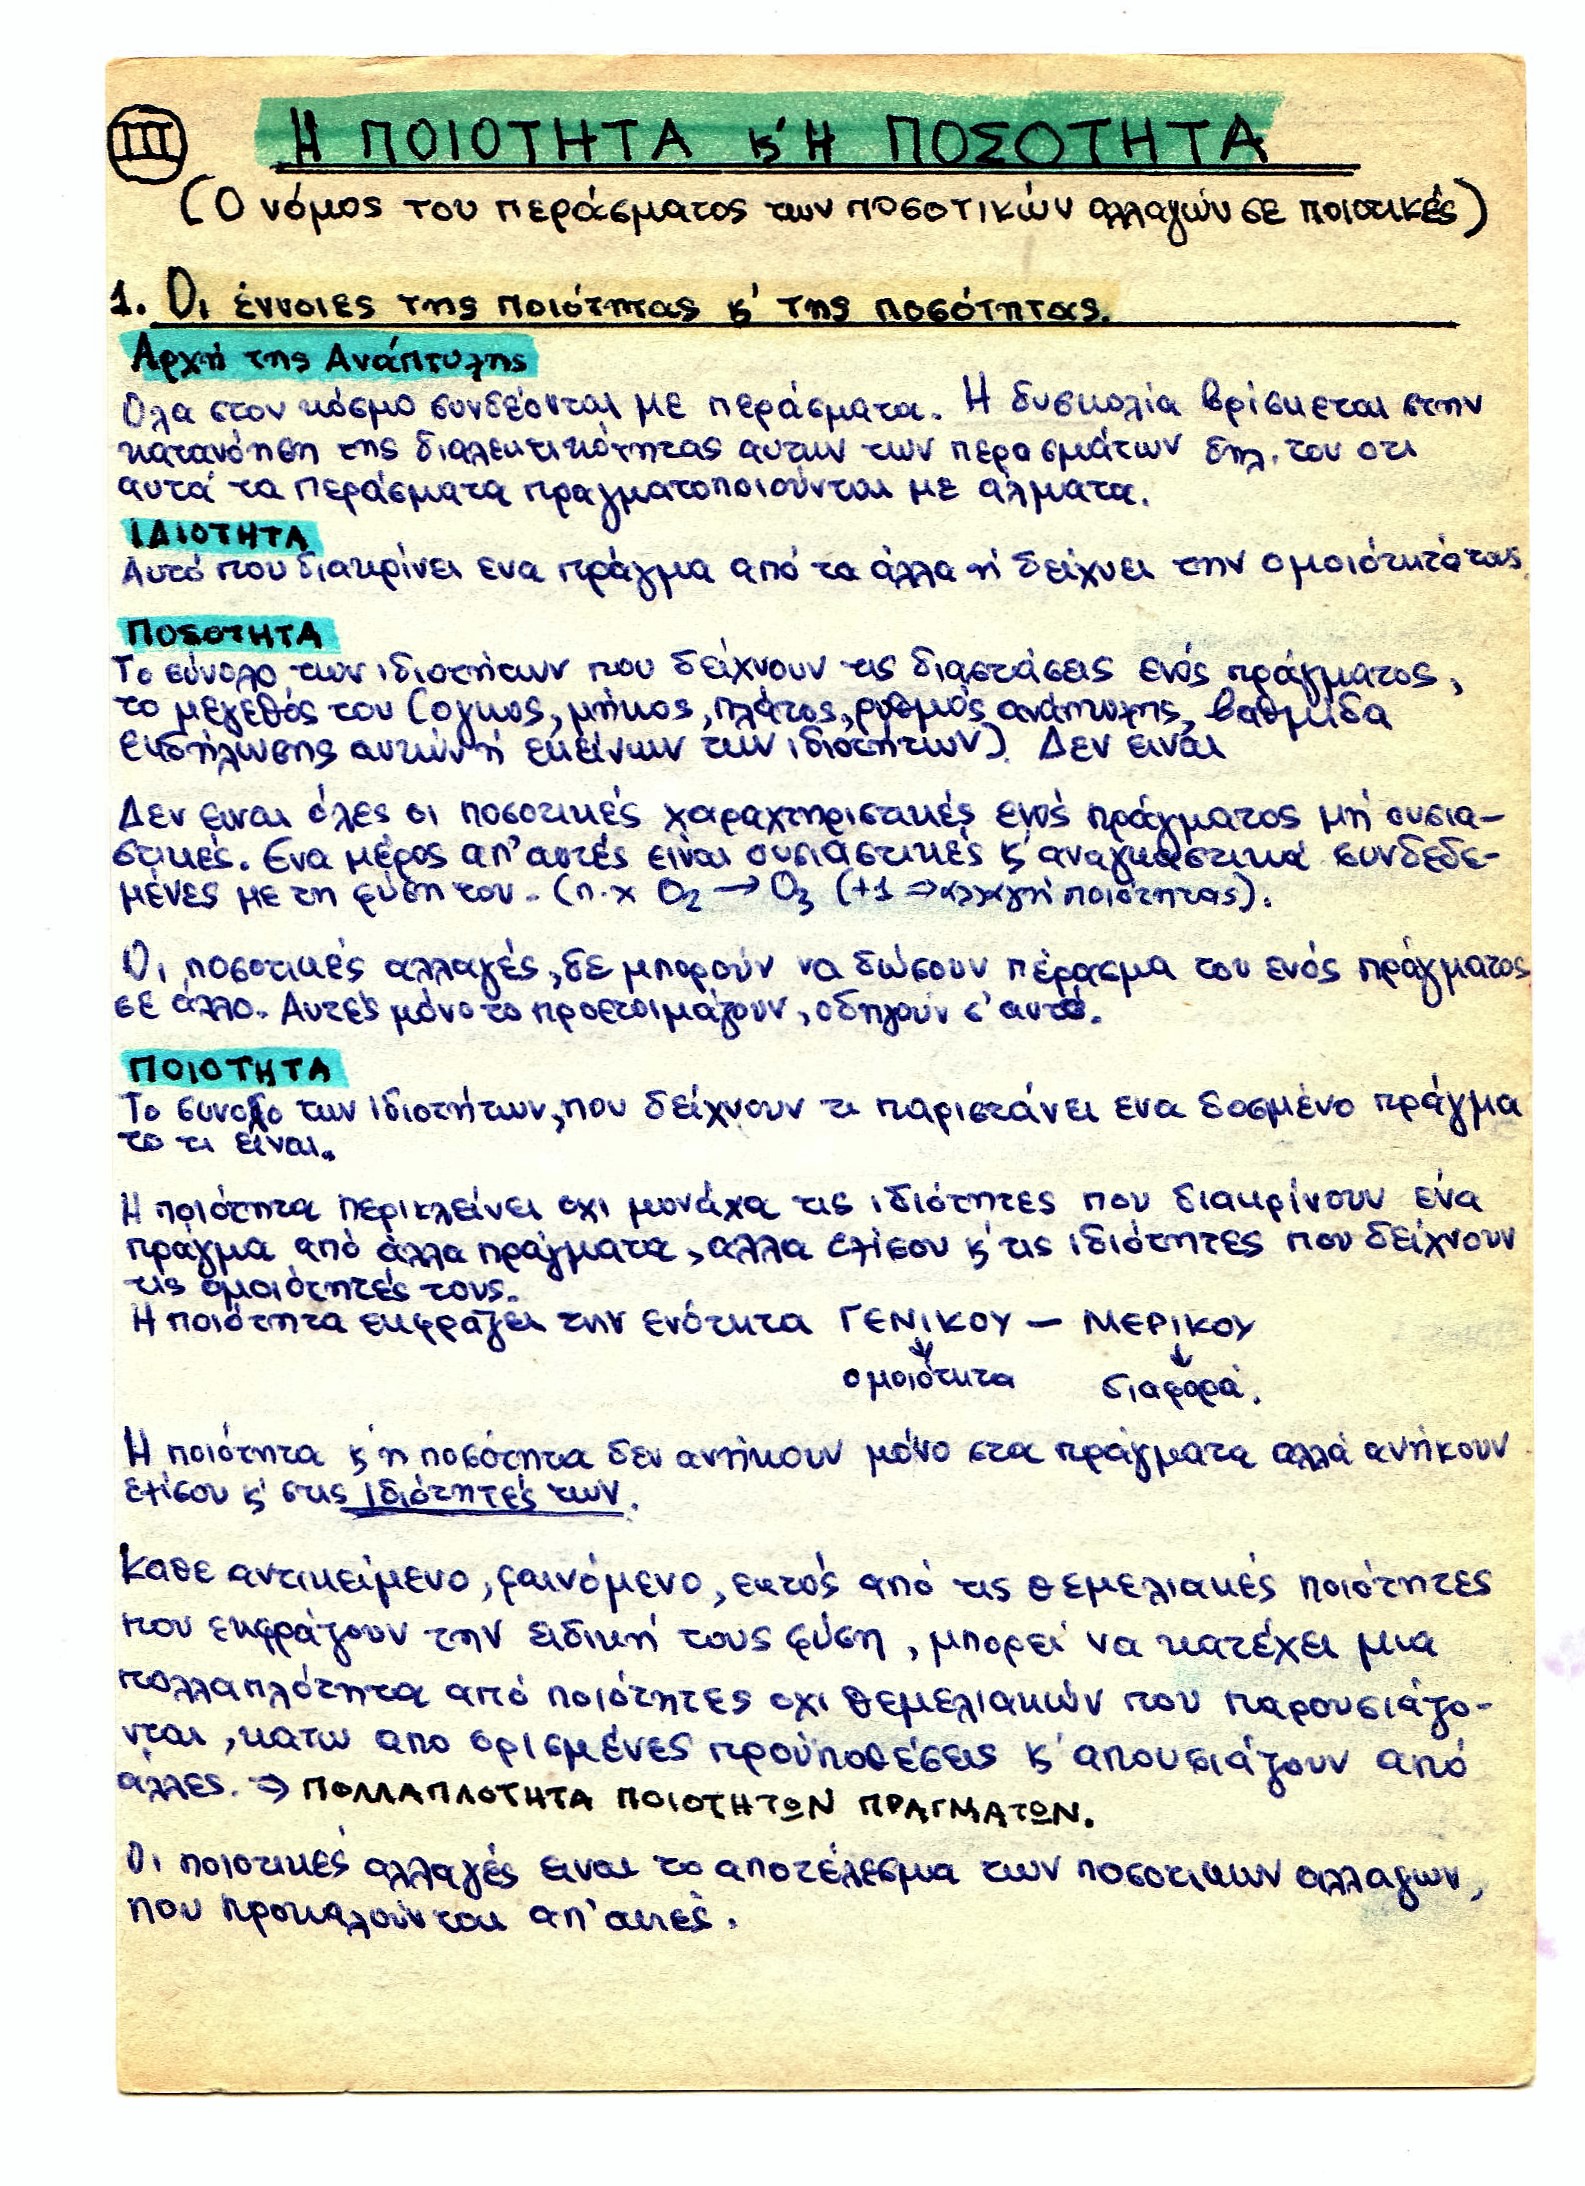 III Η ΠΟΙΟΤΗΤΑ κ' Η ΠΟΣΟΤΗΤΑ
(Ο νόμος του περάσματος των ποσοτικών αλλαγών σε ποιοτικές)
1. Οι έννοιες της ποιότητας κ' της ποσότητας.
Αρχή της Ανάπτυξης
Ολα στον κόσμο συνδέονται με περάσματα. Η δυσκολία βρίσκεται στην
κατανόηση της διαλεκτικότητας αυτων των περασμάτων δηλ. του οτι
αυτά τα περάσματα πραγματοποιούνται με άλματα.
ΙΔΙΟΤΗΤΑ
Αυτό που διακρίνει ενα πράγμα από τα άλλα ή δείχνει την ομοιότητά τους
ΠΟΣΟΤΗΤΑ
Το σύνολο των ιδιοτήτων που δείχνουν τις διαστάσεις ενός πράγματος,
το μέγεθός του (ογκος, μήκος, πλάτος, ρυθμός ανάπτυξης, βαθμίδα
εκδήλωσης αυτών ή εκείνων των ιδιοτήτων). Δεν είναι
Δεν ειναι όλες οι ποσοτικές χαραχτηριστικές ενός πράγματος μή ουσια-
στικές. Ενα μέρος απ' αυτές είναι ουσιαστικές κ' αναγκαστικά συνδεδε-
μένες με τη φύση του. (π.χ O2 → O3 (+1 ⇒ αλλαγή ποιότητας).
Οι ποσοτικές αλλαγές, δε μπορούν να δώσουν πέρασμα του ενός πράγματος
σε άλλο. Αυτές μόνο το προετοιμάζουν, οδηγούν σ' αυτό.
ΠΟΙΟΤΗΤΑ
Το συνολο των ιδιοτήτων, που δείχνουν τι παριστάνει ενα δοσμένο πράγμα
το τι είναι.
Η ποιότητα περικλείνει οχι μονάχα τις ιδιότητες που διακρίνουν ένα
πράγμα από άλλα πράγματα, αλλα εξίσου κ' τις ιδιότητες που δείχνουν
τις ομοιότητές τους.
Η ποιότητα εκφράζει την ενότητα ΓΕΝΙΚΟΥ – ΜΕΡΙΚΟΥ
ομοιότητα διαφορά.
Η ποιότητα κ' η ποσότητα δεν ανήκουν μόνο στα πράγματα αλλά ανήκουν
εξίσου κ' στις ιδιότητές των.
Καθε αντικείμενο, φαινόμενο, εκτός από τις θεμελιακές ποιότητες
που εκφράζουν την ειδική τους φύση, μπορεί να κατέχει μια
πολλαπλότητα από ποιότητες οχι θεμελιακών που παρουσιάζο-
νται, κατω απο ορισμένες προϋποθέσεις κ' απουσιάζουν από
άλλες. ⇒ ΠΟΛΛΑΠΛΟΤΗΤΑ ΠΟΙΟΤΗΤΩΝ ΠΡΑΓΜΑΤΩΝ.
Οι ποιοτικές αλλαγές ειναι το αποτέλεσμα των ποσοτικων αλλαγων,
που προκαλούνται απ' αυτές.